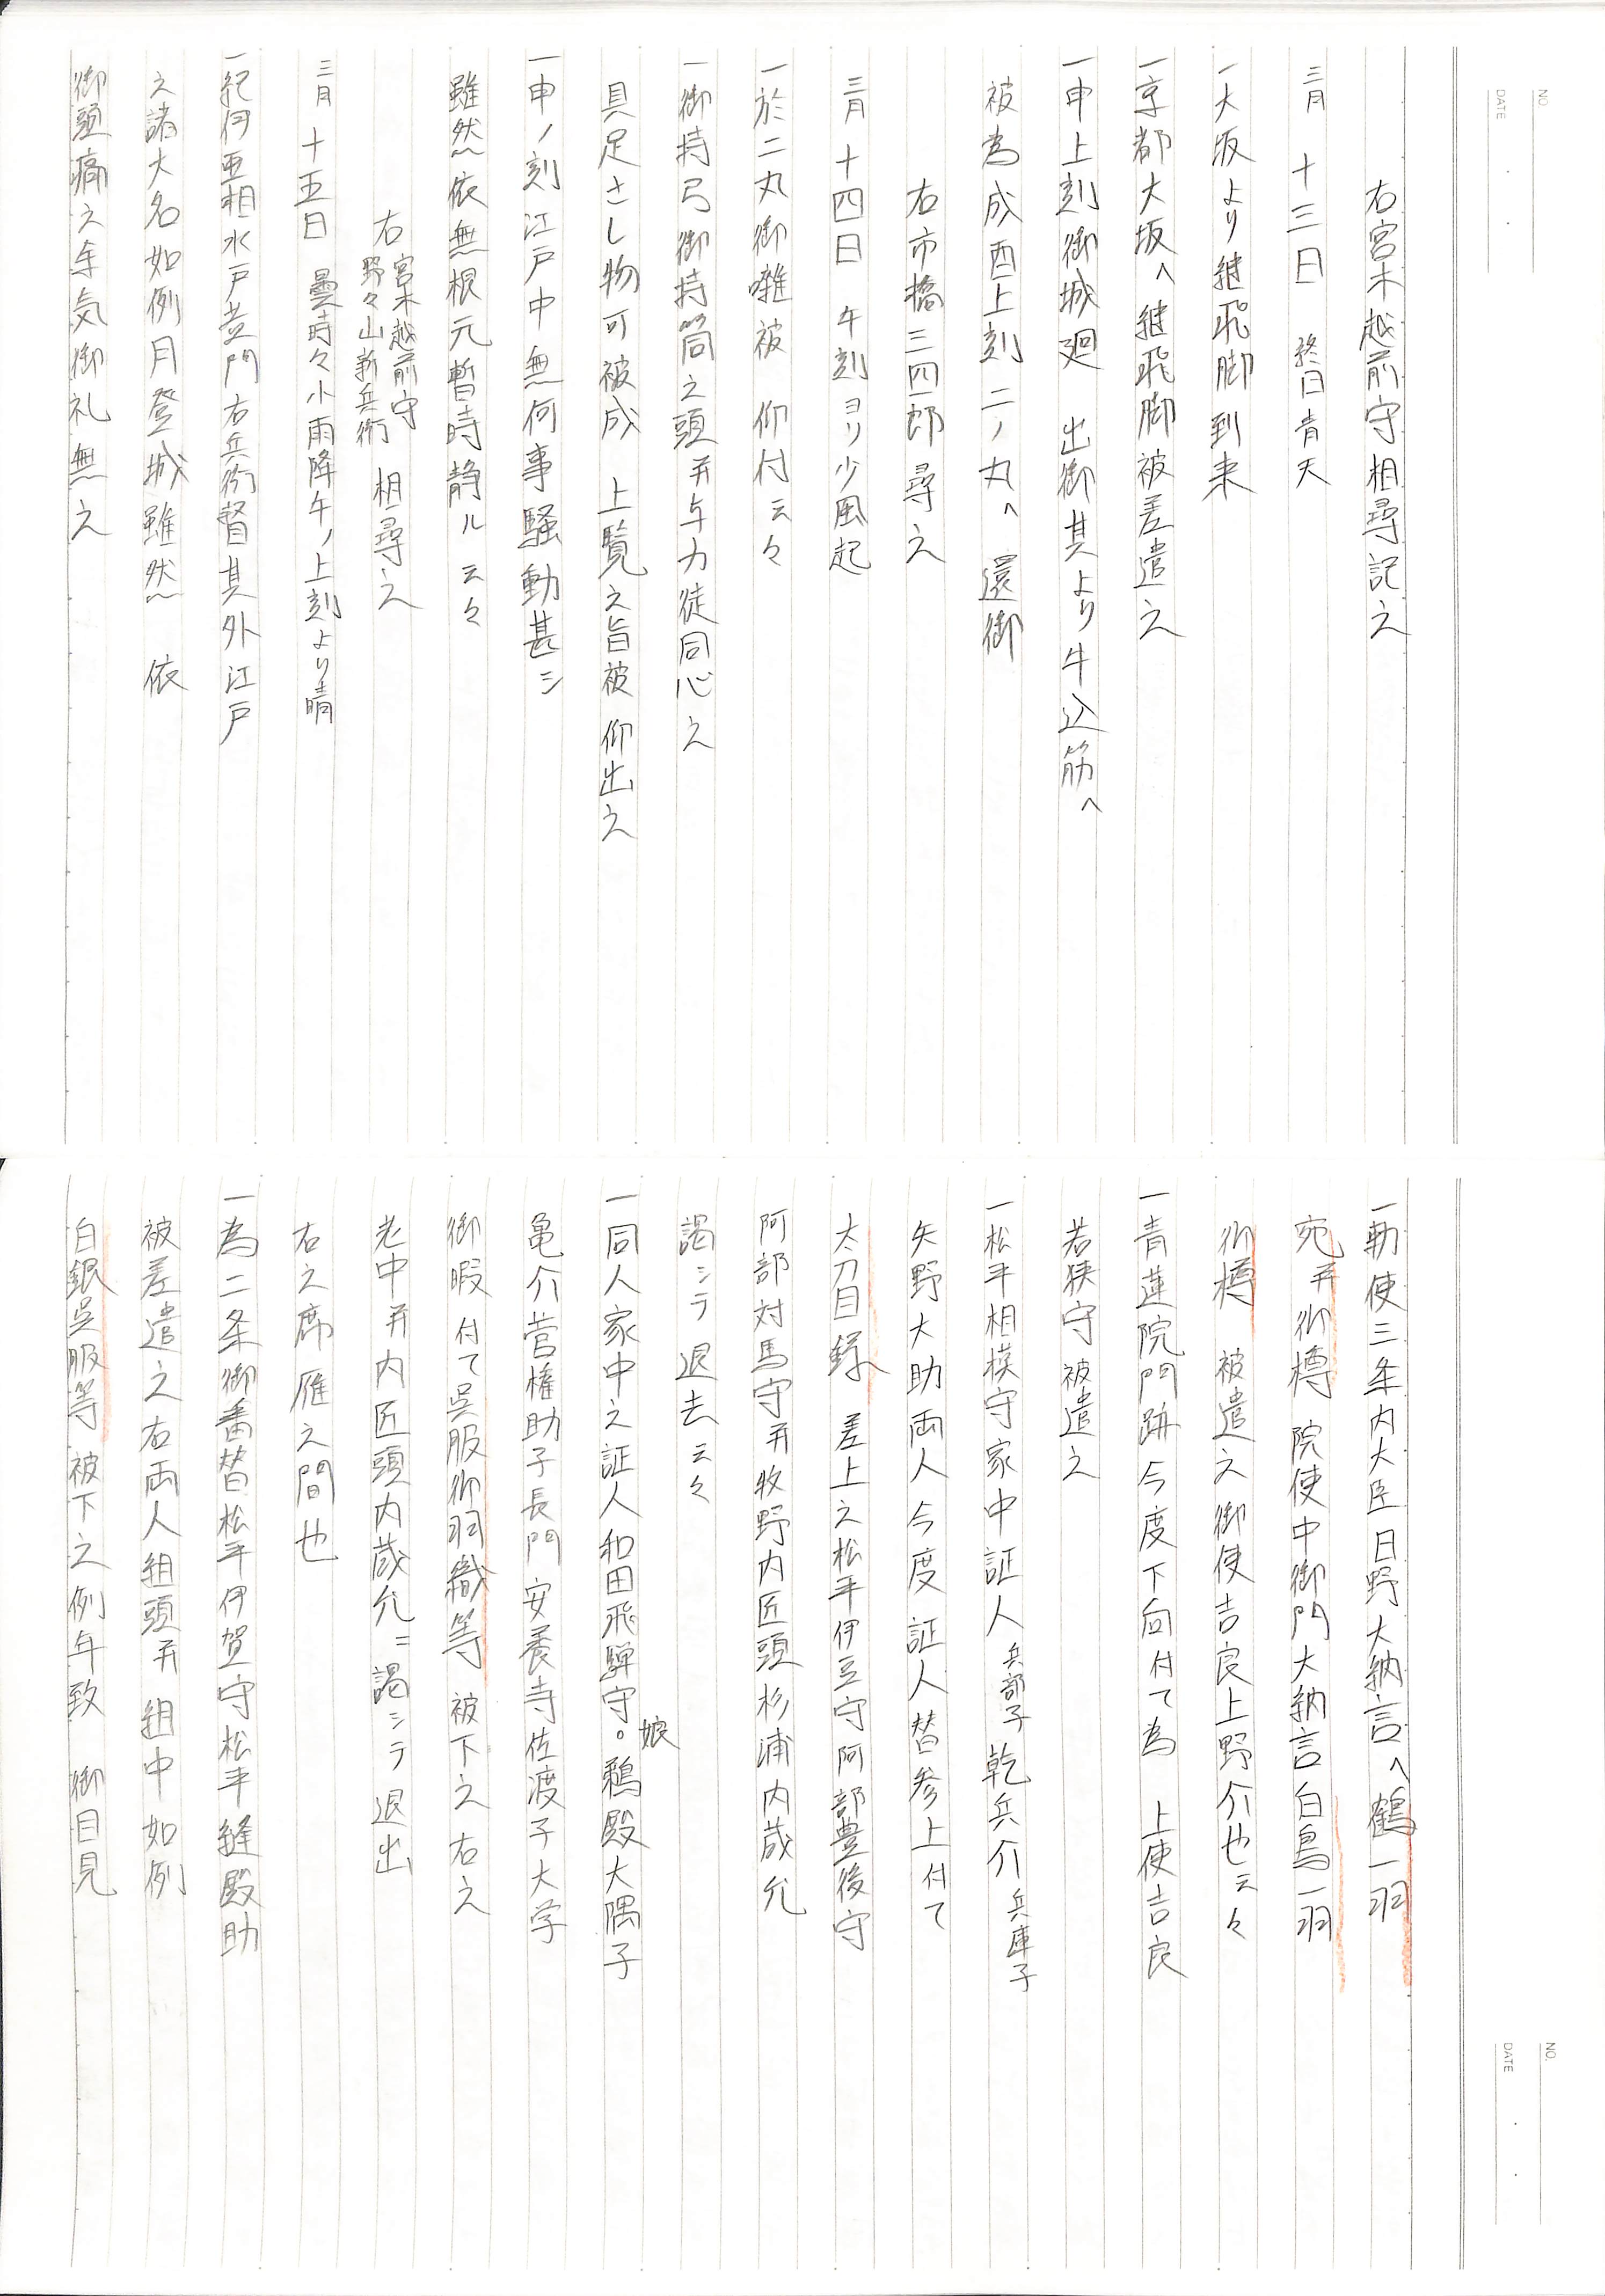 NO.
DATE
右宮木越前守相尋記之
三月 十三日 終日青天
一大坂より継飛脚到来
一京都大坂へ継飛脚被差遣之
一申上刻御城廻 出御其より牛込筋へ
被為成酉上刻二ノ丸へ 還御
右市橋三四郎尋之
三月 十四日 午刻ヨリ少風起
一於二丸御囃被 仰付云々
一御持弓御持筒之頭并与力徒同心之
具足さし物可被成 上覧之旨被 仰出之
一申ノ刻江戸中無何事騒動甚シ
雖然依無根元暫時静ル云々
右 宮木越前守 野々山新兵衛 相尋之
三月 十五日 曇時々小雨降午ノ上刻より晴
一紀伊亜相水戸黄門右兵衛督其外江戸
之諸大名如例月登城雖然 依
御頭痛之余気御礼無之
NO.
DATE
一勅使三条内大臣日野大納言へ鶴一羽
宛并御樽 院使中御門大納言白鳥一羽
御樽 被遣之御使吉良上野介也云々
一青蓮院門跡今度下向付て為 上使吉良
若狭守被遣之
一松平相模守家中証人 兵部子 乾兵介 兵庫子
矢野大助両人今度証人替参上付て
太刀目録 差上之松平伊豆守阿部豊後守
阿部対馬守并牧野内匠頭杉浦内蔵允
謁シテ退去云々
一同人家中之証人和田飛騨守。娘鵜殿大隅子
亀介菅権助子長門安養寺佐渡子大学
御暇付て呉服御羽織等 被下之右之
老中并内匠頭内蔵允ニ謁シテ退出
右之席雁之間也
一為二条御番替松平伊賀守松平縫殿助
被差遣之右両人組頭并組中如例
白銀呉服等被下之例年致 御目見